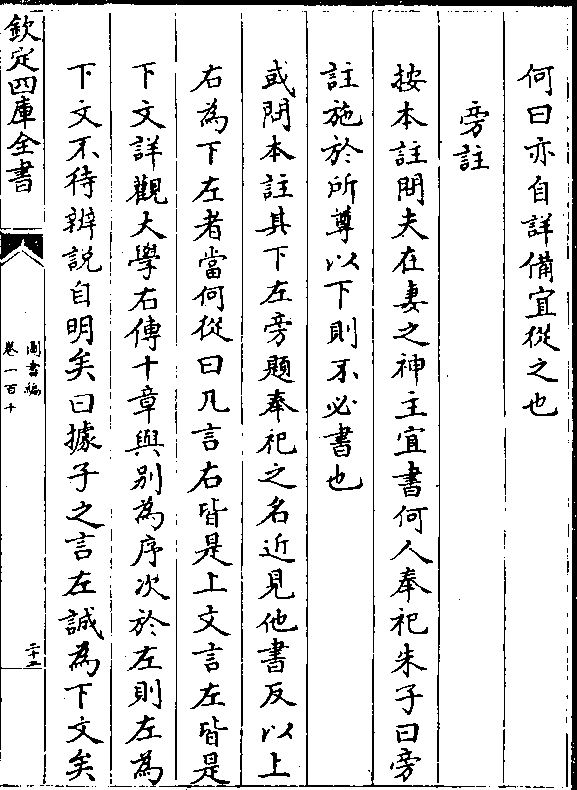 何曰亦自詳備宜從之也
旁註
按本註問夫在妻之神主宜書何人奉祀朱子曰旁
註施於所尊以下則不必書也
或問本註其下左旁題奉祀之名近見他書反以上
右為下左者當何從曰凡言右皆是上文言左皆是
下文詳觀大學右傳十章與别為序次於左則左為
下文不待辨説自明矣曰據子之言左誠為下文矣
欽定四庫全書
圖書編
卷一百十
二十二